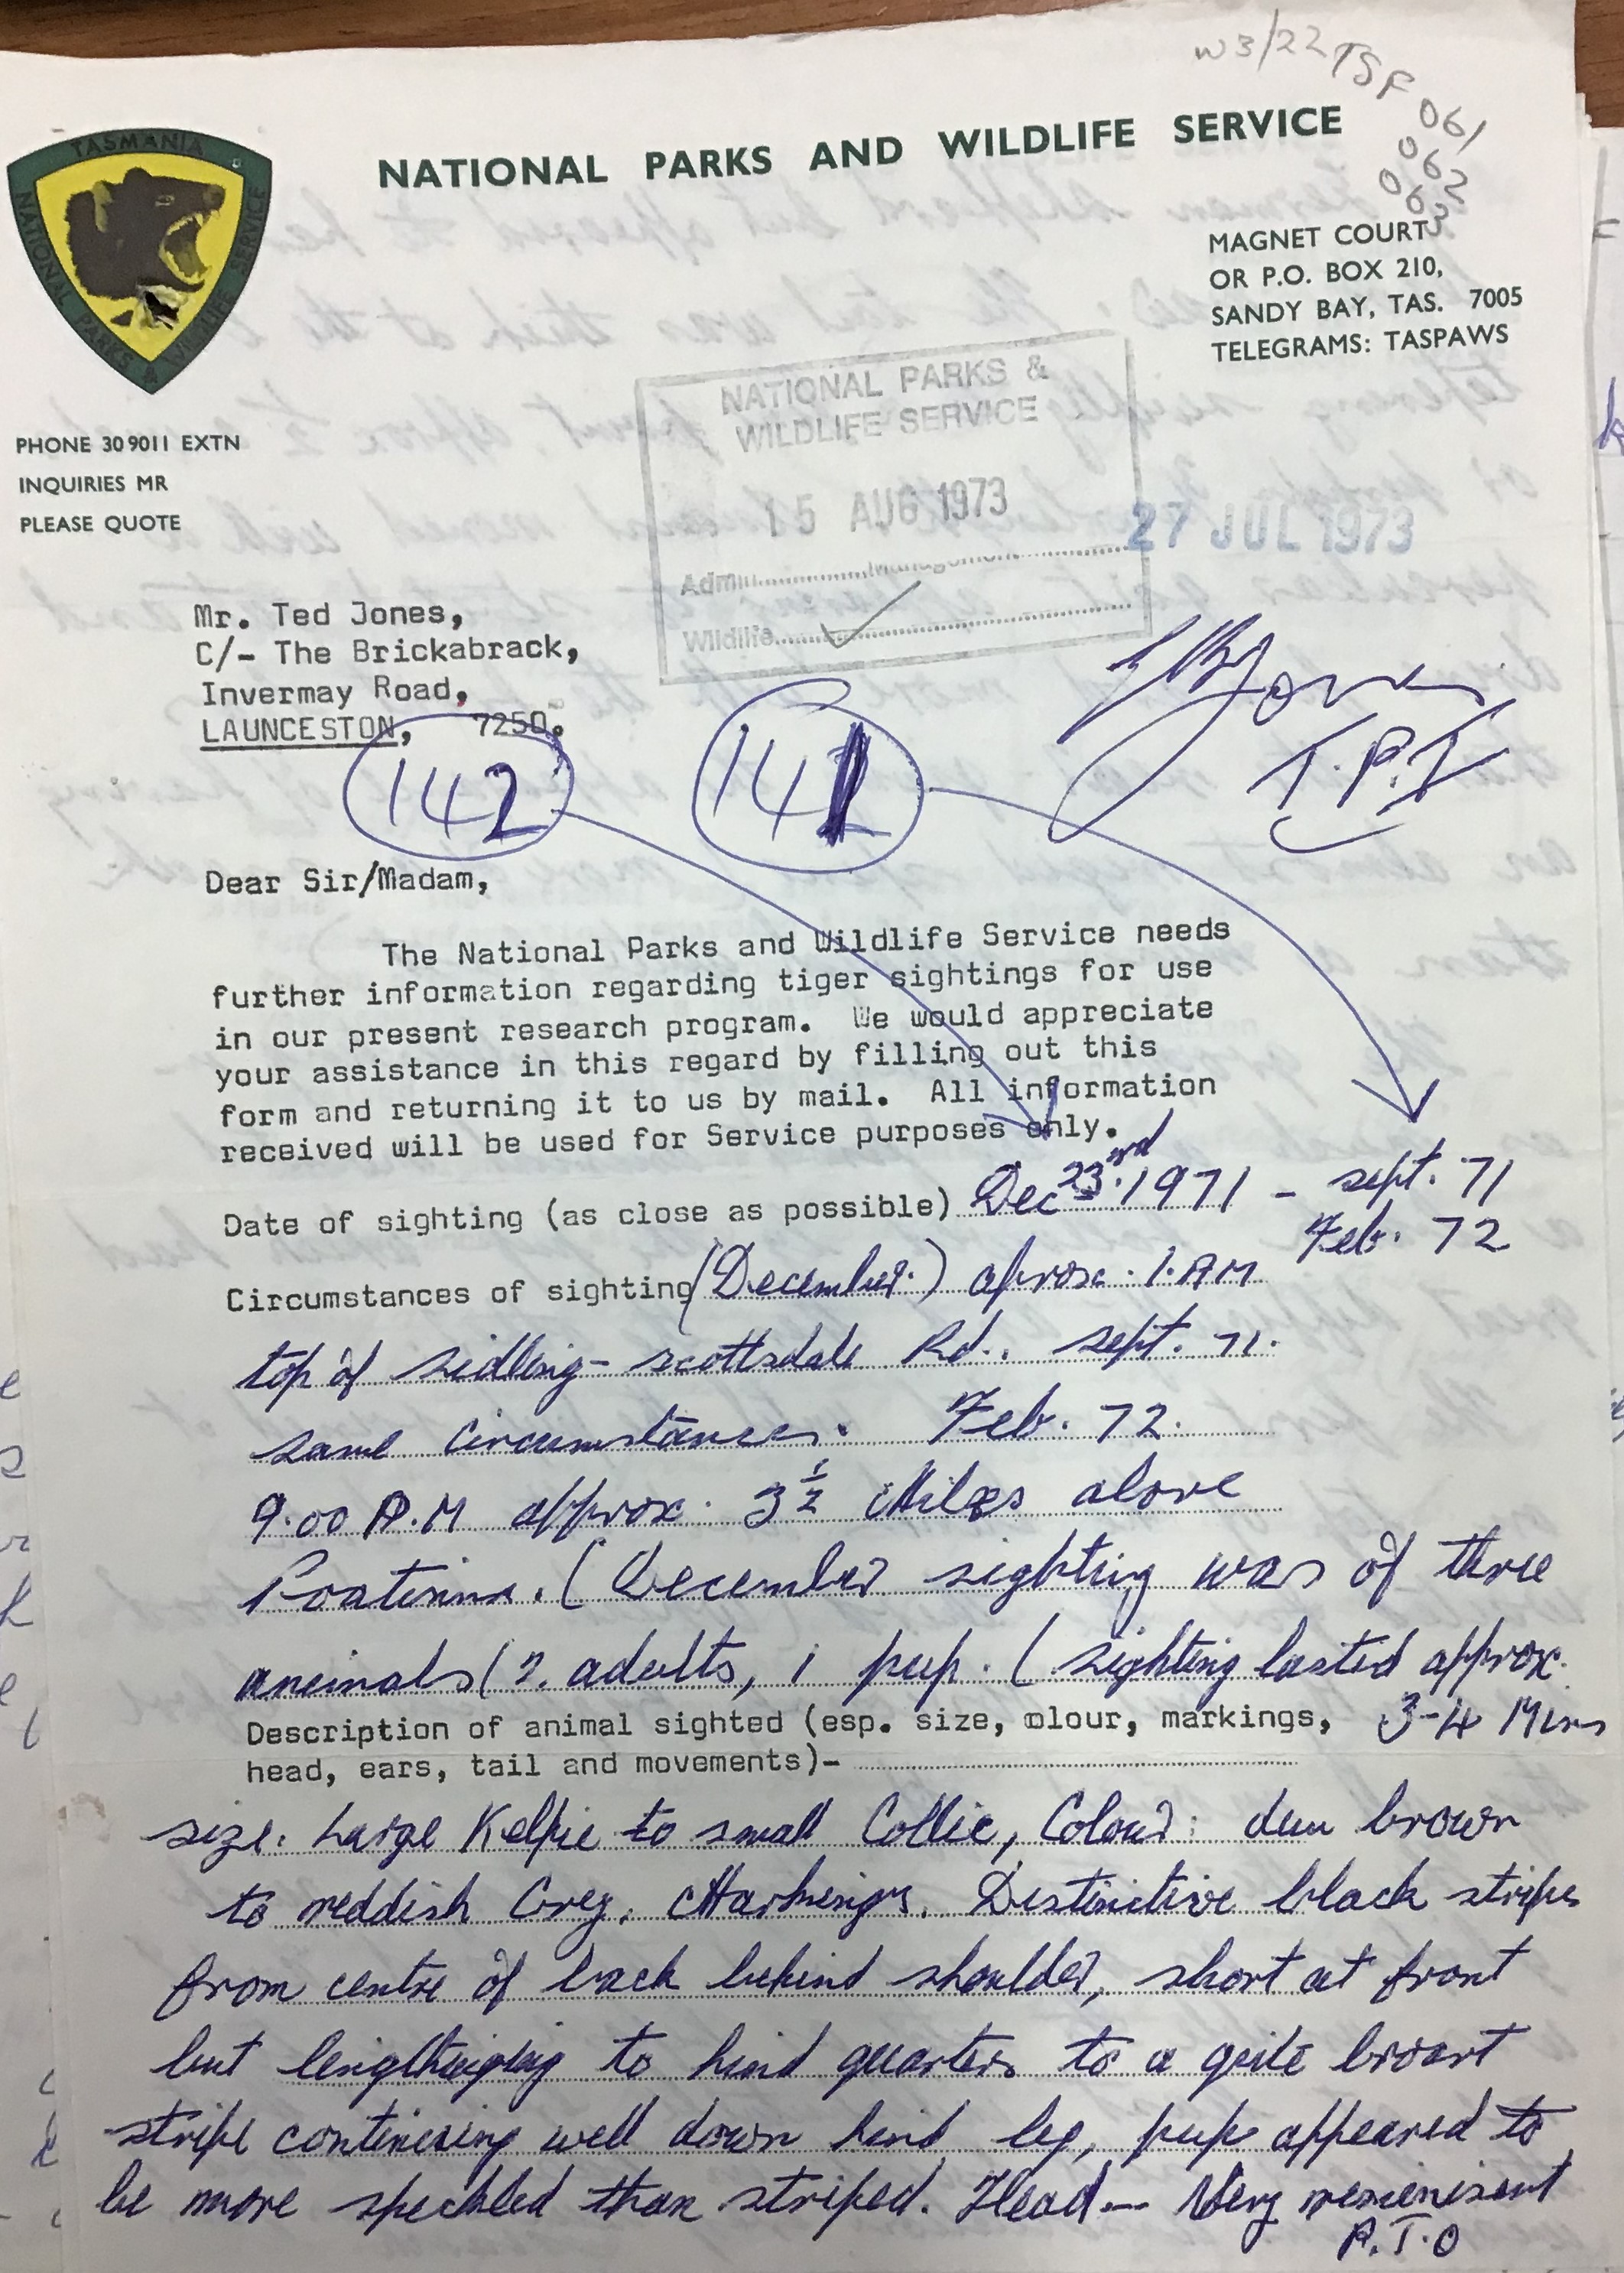 W3/22 TSF 061
062
063
TASMANIA
NATIONAL PARKS & WILDLIFE SERVICE
NATIONAL PARKS AND WILDLIFE SERVICE
MAGNET COURT
OR P.O. BOX 210,
SANDY BAY, TAS. 7005
TELEGRAMS: TASPAWS
PHONE 30 9011 EXTN
INQUIRIES MR
PLEASE QUOTE
NATIONAL PARKS &
WILDLIFE SERVICE
15 AUG 1973
27 JUL 1973
Admin Management
Wildlife
Mr. Ted Jones,
C/- The Brickabrack,
Invermay Road,
LAUNCESTON, 7250.
Jones
T.P.I
142
141
Dear Sir/Madam,
The National Parks and Wildlife Service needs
further information regarding tiger sightings for use
in our present research program. We would appreciate
your assistance in this regard by filling out this
form and returning it to us by mail. All information
received will be used for Service purposes only.
Date of sighting (as close as possible) Dec 23rd. 1971 - sept. 71
Feb. 72
Circumstances of sighting (December.) aprox. 1. AM
top of sidling - scottsdale Rd.. sept. 71.
same circumstances. Feb. 72.
9.00 P.M approx. 3½ Miles above
Poatinna. (December sighting was of three
animals (2. adults, 1 pup. (sighting lasted approx.
3-4 Mins
Description of animal sighted (esp. size, colour, markings,
head, ears, tail and movements)-
size. Large Kelpie to small Collie, Colour: dun brown
to reddish Grey. Markings. Distinctive black stripes
from centre of back behind shoulder, short at front
but lengthening to hind quarters to a quite broart
stripe continuing well down hind leg, pup appeared to
be more speckled than striped. Head- Very reminisant
P.T.O